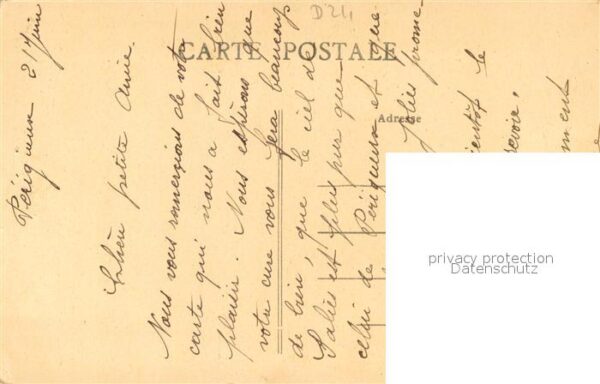 D24
CARTE POSTALE
Adresse
Périgueux 21 Juin
Chère petite amie
Nous vous remercions de votre
carte qui nous a fait bien
plaisir. Nous espérons que
votre cure vous fera beaucoup
de bien, que le ciel de
Salies est plus pur que
celui de Périgueux et que
jolies prome
bientôt le
revoir,
ment
privacy protection
Datenschutz